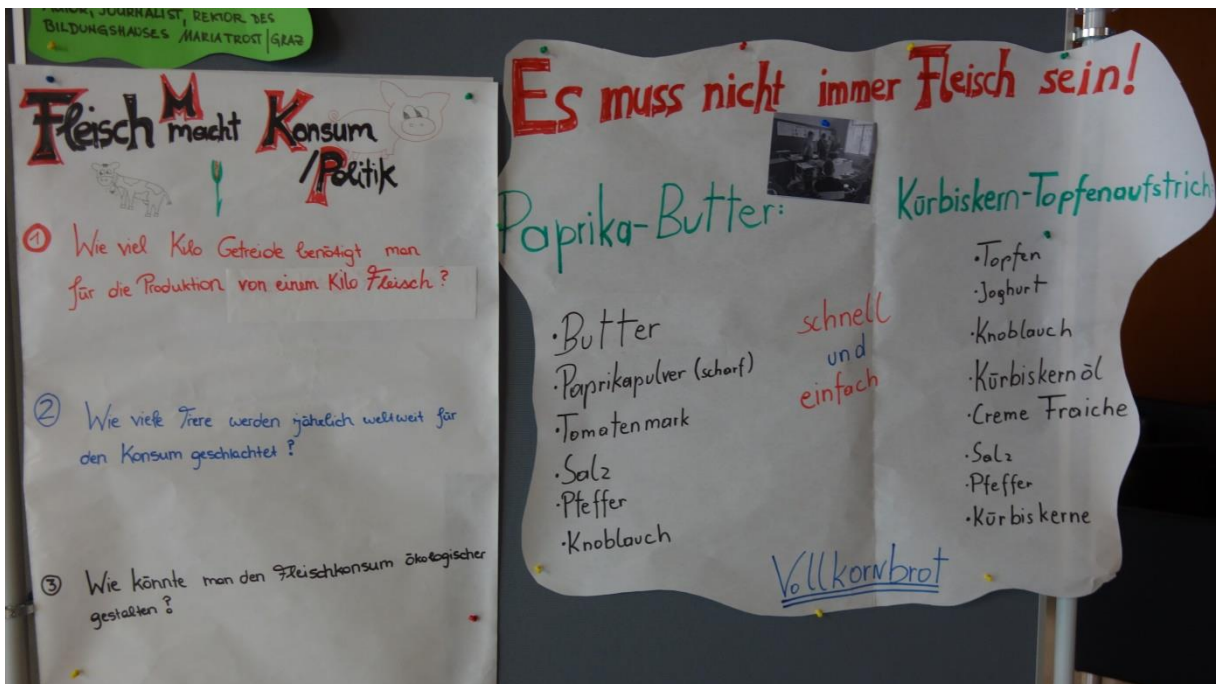 AUTOR, JOURNALIST, REKTOR DES
BILDUNGSHAUSES MARIATROST/GRAZ
Fleisch Macht Konsum
/Politik
1 Wie viel Kilo Getreide benötigt man
für die Produktion von einem Kilo Fleisch?
2 Wie viele Tiere werden jährlich weltweit für
den Konsum geschlachtet?
3 Wie könnte man den Fleischkonsum ökologischer
gestalten?
Es muss nicht immer Fleisch sein!
Paprika-Butter:
·Butter
·Paprikapulver (scharf)
·Tomatenmark
·Salz
·Pfeffer
·Knoblauch
schnell
und
einfach
Kürbiskern-Topfenaufstrich:
·Topfen
·Joghurt
·Knoblauch
·Kürbiskernöl
·Creme Fraiche
·Salz
·Pfeffer
·Kürbiskerne
Vollkornbrot